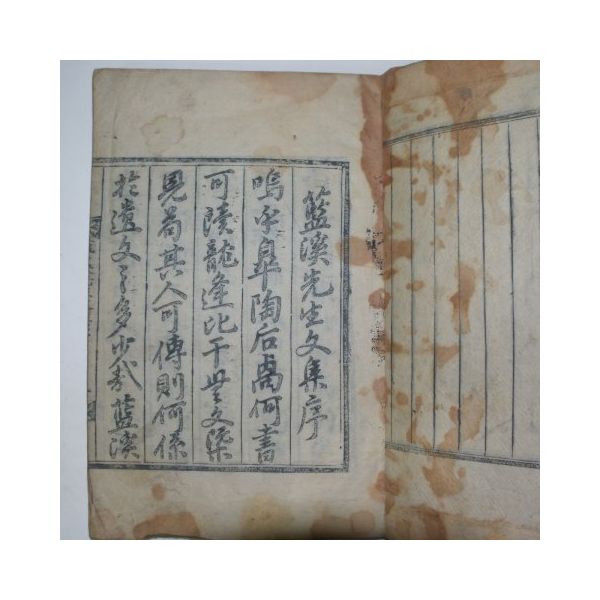 籃溪先生文集序
嗚乎皐陶后禼何書
可讀龍逄比干無文集
見苟其人可傳則何係
於遺文之多少哉籃溪